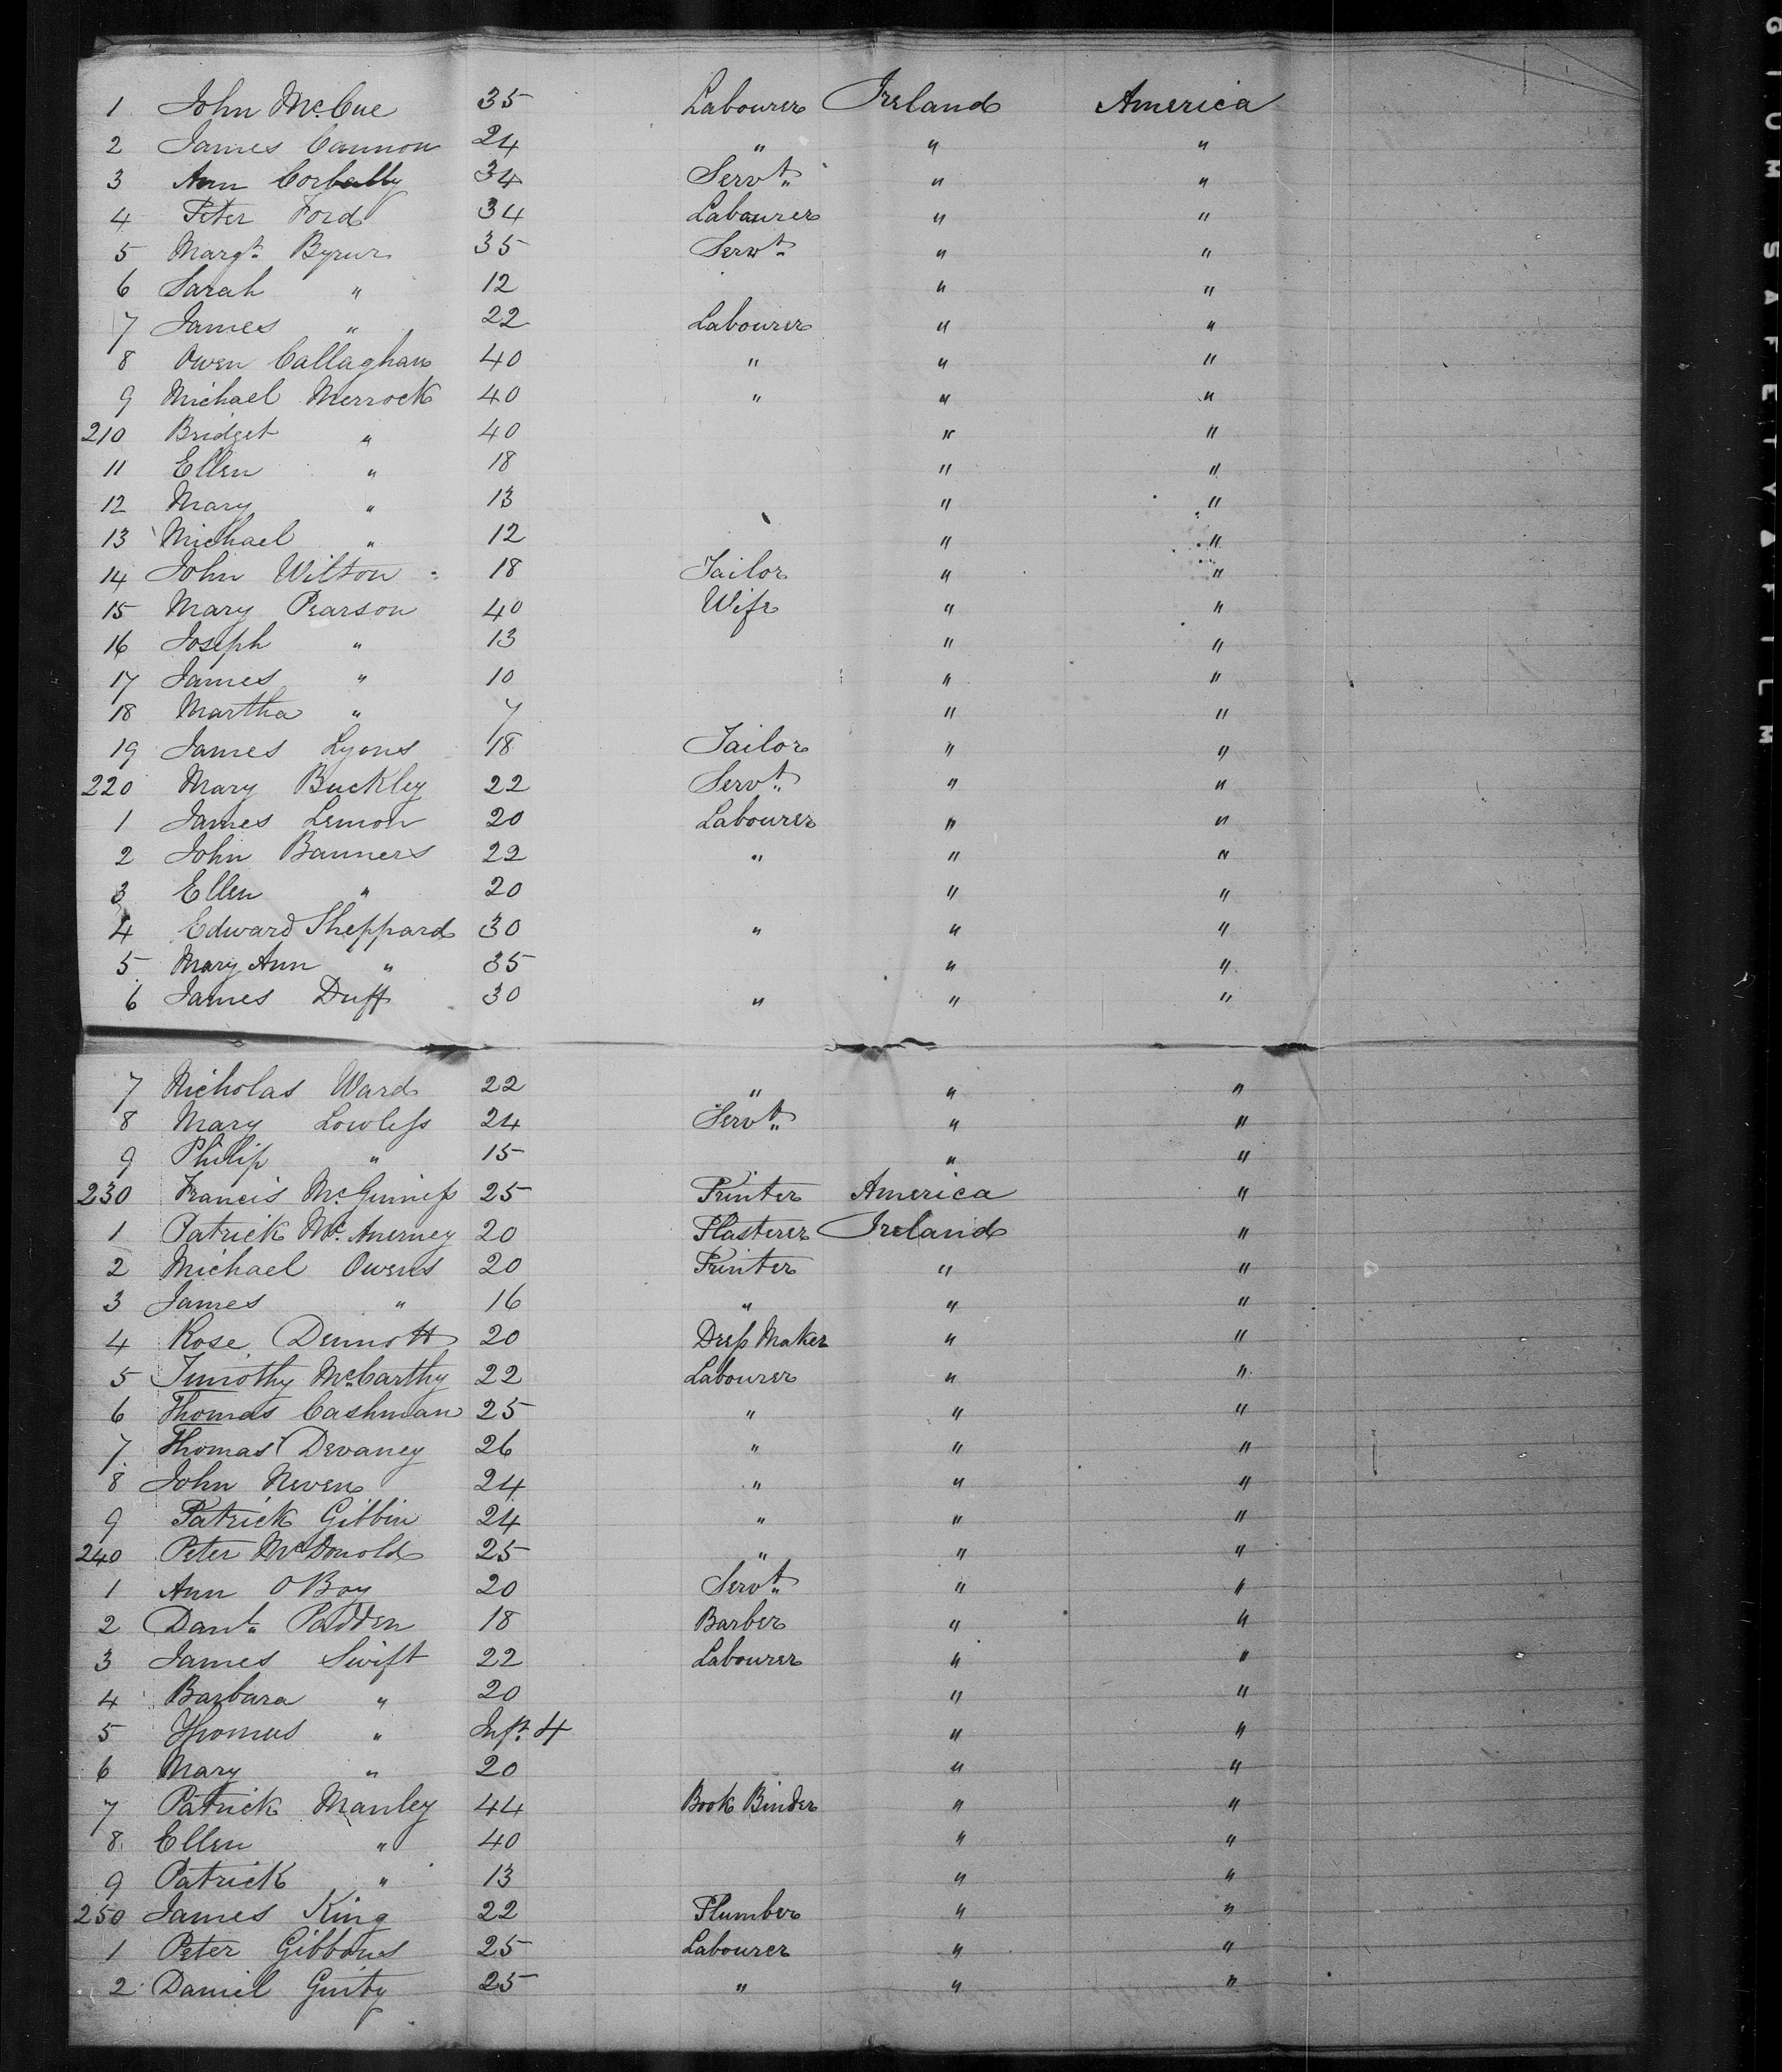 1 John McCue 35 Labourer Ireland America
2 James Cannon 24 " " "
3 Ann Corbally 34 Servt " "
4 Peter Ford 34 Labourer " "
5 Margt Byrne 35 Servt " "
6 Sarah " 12 " "
7 James " 22 Labourer " "
8 Owen Callaghan 40 " " "
9 Michael Merrock 40 " " "
210 Bridget " 40 " "
11 Ellen " 18 " "
12 Mary " 13 " "
13 Michael " 12 " "
14 John Wilton 18 Tailor " "
15 Mary Pearson 40 Wife " "
16 Joseph " 13 " "
17 James " 10 " "
18 Martha " 7 " "
19 James Lyons 18 Tailor " "
220 Mary Buckley 22 Servt " "
1 James Lemon 20 Labourer " "
2 John Banners 22 " " "
3 Ellen " 20 " "
4 Edward Sheppard 30 " " "
5 Mary Ann " 35 " "
6 James Duff 30 " " "
7 Nicholas Ward 22 " " "
8 Mary Lowless 24 Servt " "
9 Philip " 15 " "
230 Francis McGuiness 25 Printer America "
1 Patrick McAnerney 20 Plasterer Ireland "
2 Michael Owens 20 Printer " "
3 James " 16 " " "
4 Rose Dermott 20 Dress Maker " "
5 Timothy McCarthy 22 Labourer " "
6 Thomas Cashman 25 " " "
7 Thomas Devaney 26 " " "
8 John Neven 24 " " "
9 Patrick Gibbin 24 " " "
240 Peter McDonold 25 " " "
1 Ann O'Boy 20 Servt " "
2 Danl Padden 18 Barber " "
3 James Swift 22 Labourer " "
4 Barbara " 20 " "
5 Thomas " Inft 4 " "
6 Mary " 20 " "
7 Patrick Manley 44 Book Binder " "
8 Ellen " 40 " "
9 Patrick " 13 " "
250 James King 22 Plumber " "
1 Peter Gibbons 25 Labourer " "
2 Daniel Ginty 25 " " "
SAFETY FILM